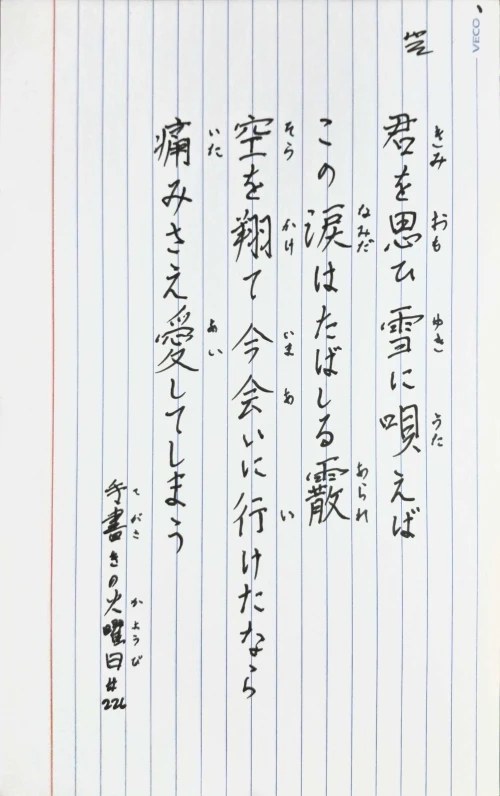 VECO
君を思ひ雪に唄えば
きみ おも ゆき うた
この涙はたばしる霰
なみだ あられ
空を翔て今会いに行けたなら
そら かけ いま あ い
痛みさえ愛してしまう
いた あい
手書きの火曜日#226
てがき かようび